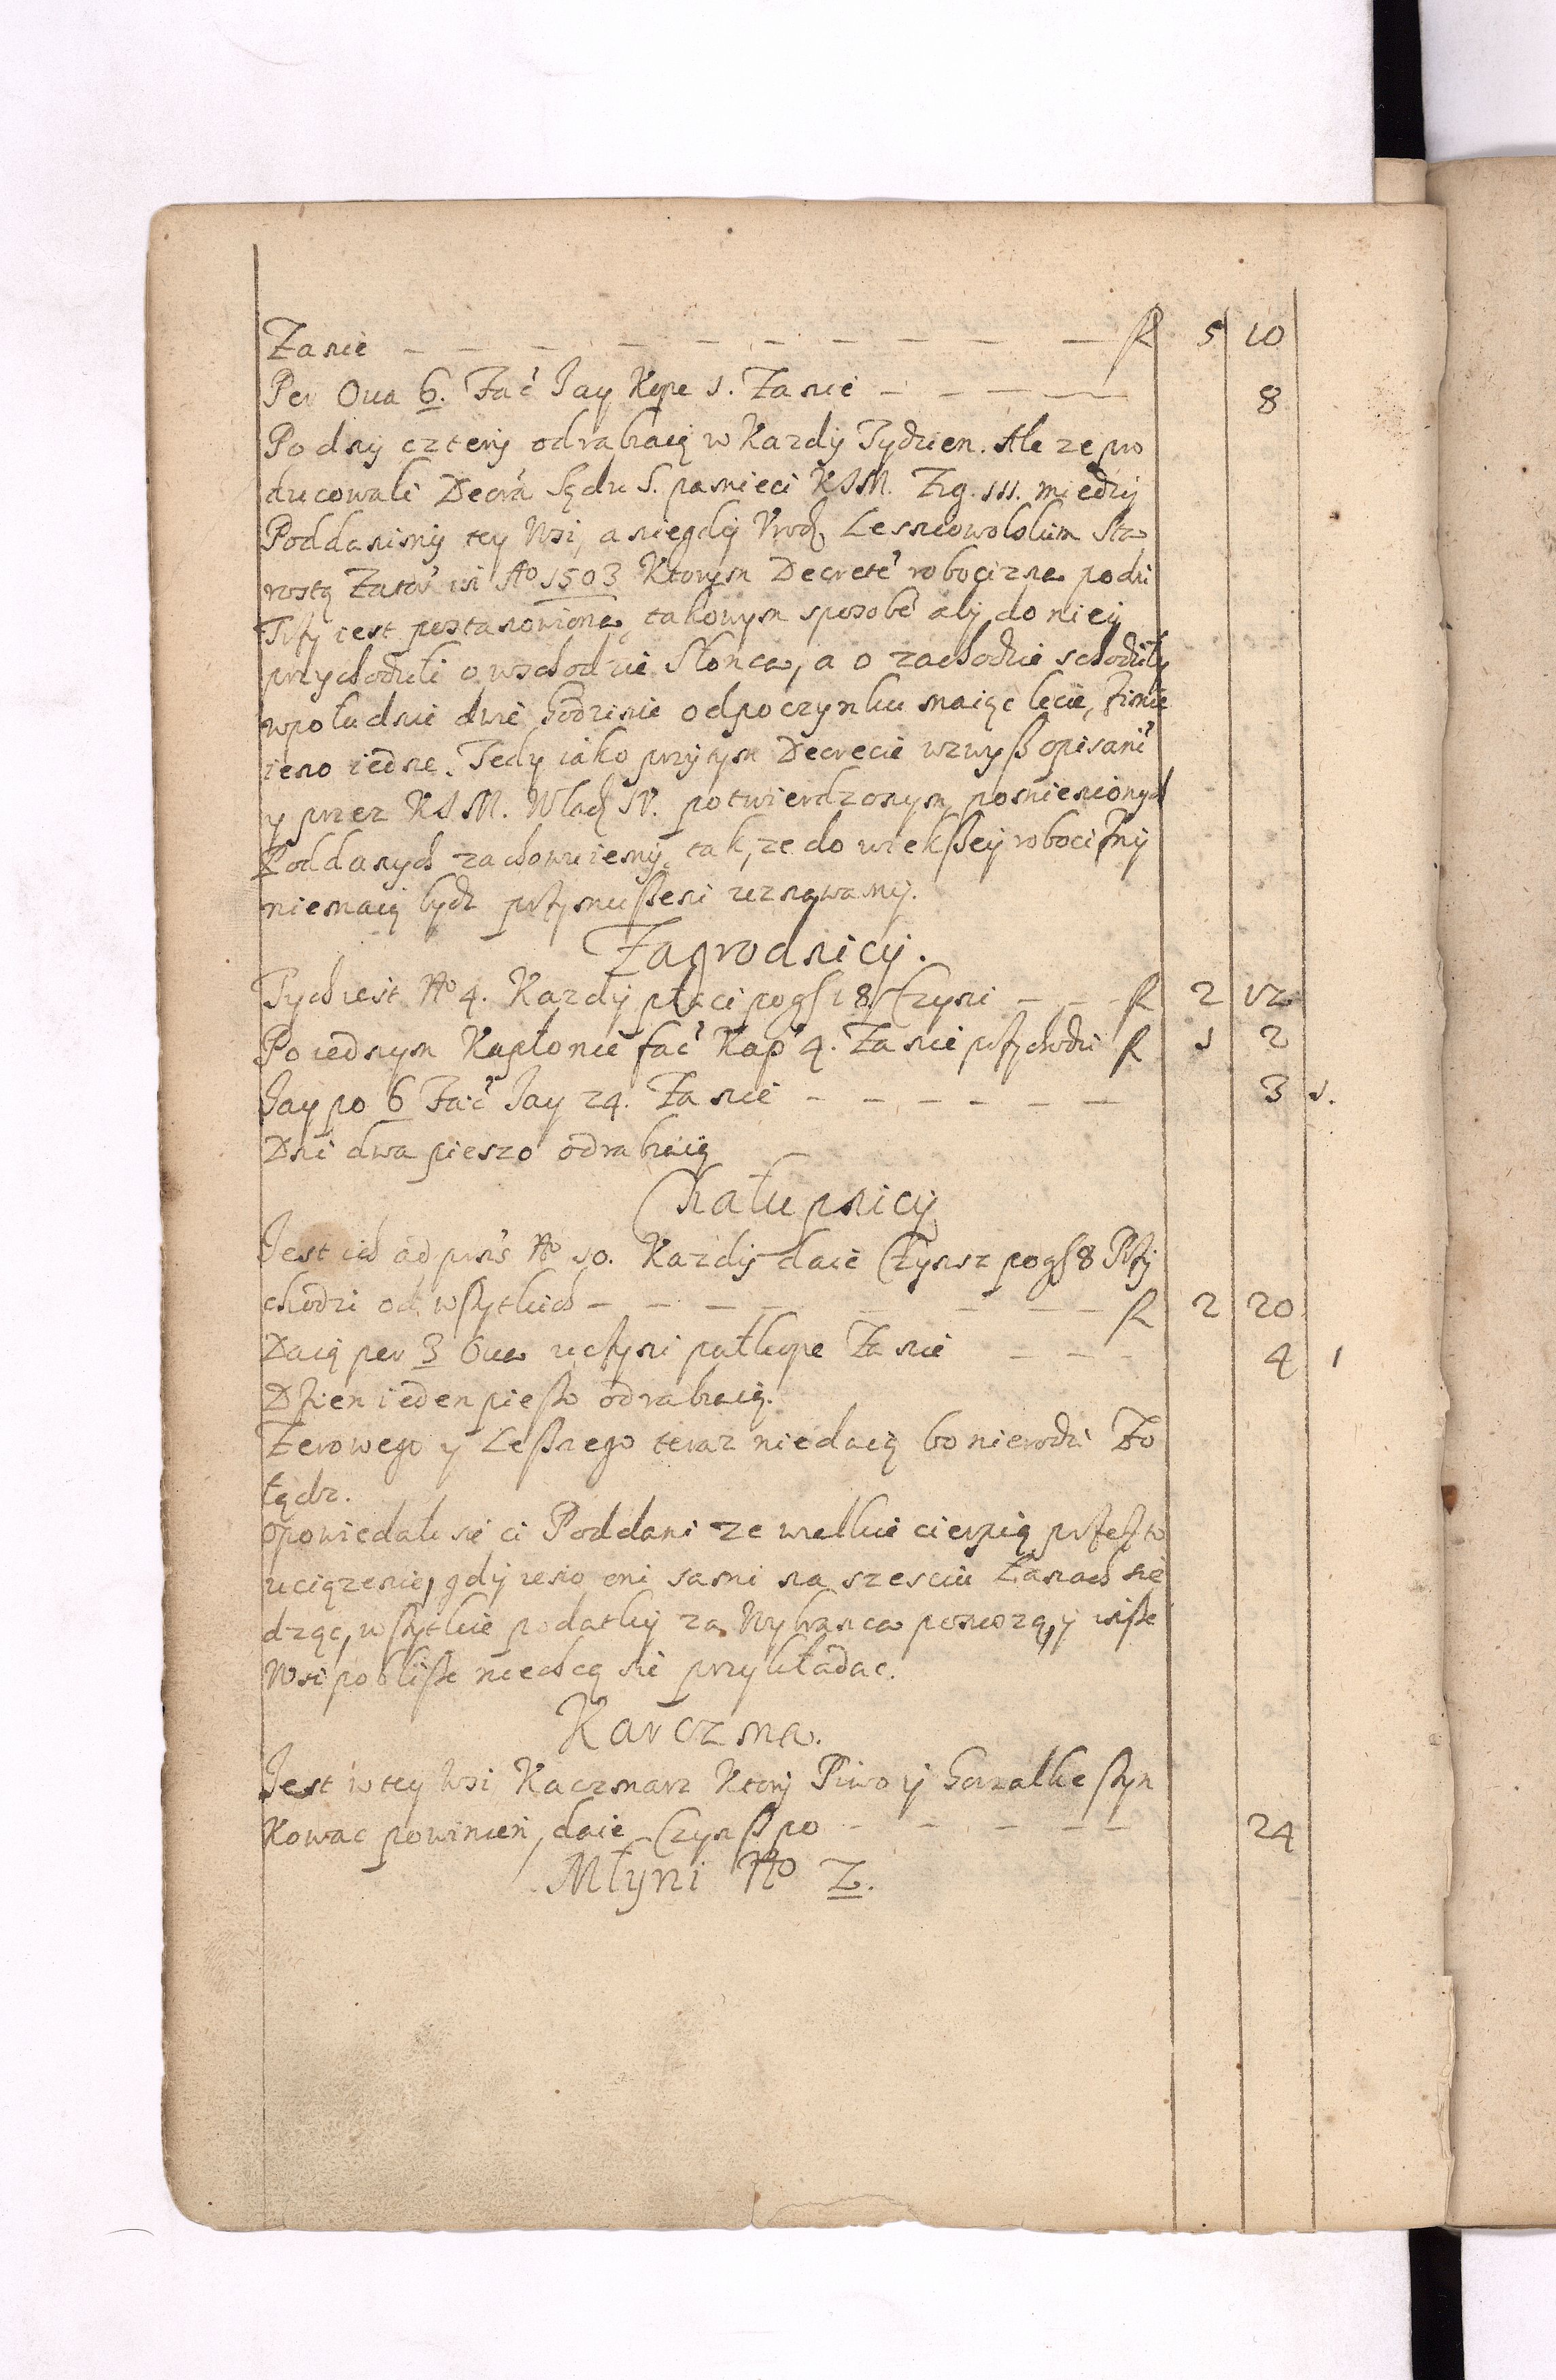 Za nie — — — — — — — — — f 5 10
Per Oua 6. Fac̃ Jay Kope 1. Za nie — — — — 8
Po dny cztery odrabiaią w Kazdy Tydzien. Ale ze pro
ducowali Decrã Sędu S. pamieci KJM. Zig. III. miedzy
Poddanimy tey Wsi, a niegdy Vrod. Lesniowolskim Sta
rostą Ao 1503 Ktorym Decretẽ robocizna po dni
iest postanowiona, takowym sposobẽ aby do niey
przychodzili o wschodzie Słonca, a o zachodzie schodzili,
w południe dwie Godzinie odpoczynku maiąc lecie, Zimie
ieno iedne. Tedy iako przy tym Decrecie wzwyß opisanĩ
y przez KJM. Wład. IV. potwierdzonym, pomienionych
Poddanych zachowuiemy, tak, ze do wiekßey robocizny
niemaią bydz przymußeni uznawamy.
Zagrodnicy.
Tych iest No 4. Kazdy płaci po gſ 18. Czyni — — — f 2 12
Po iednym Kapłonie fac̃ Kap 4. Za nie przychodzi f 1 2
Jay po 6 Fac̃ Jay 24. Za nie — — — — — — 3 1.
Dni dwa pieszo odrabiaią
Chałupnicy
Jest ich ad prñs No 10. Kazdy daie Czynsz po gſ 8 Przy
chodzi od wszytkich — — — — — — — — f 2 20
Daią per 3 Oua uczyni pułkope Za nie — — — 4 1
Dzien ieden pießo odrabiaią.
Zerowego y Leßnego teraz niedaią bo nierodzi Zo
łądz.
Opowiedali się ci Poddani ze wielkie cierpią przez to
uciązenie, gdy ieno oni sami na szesciu Łanach sie
dząc, wszytkie podatki za Wybranca ponoszą, y inße
Wsi pobliße niechcą się przykładac.
Karczma.
Jest w tey Wsi Kaczmarz Ktory Piwo y Gorzałke szyn
Kowac powinien, daie Czynß po — — — — — 24
Młyni No 2.